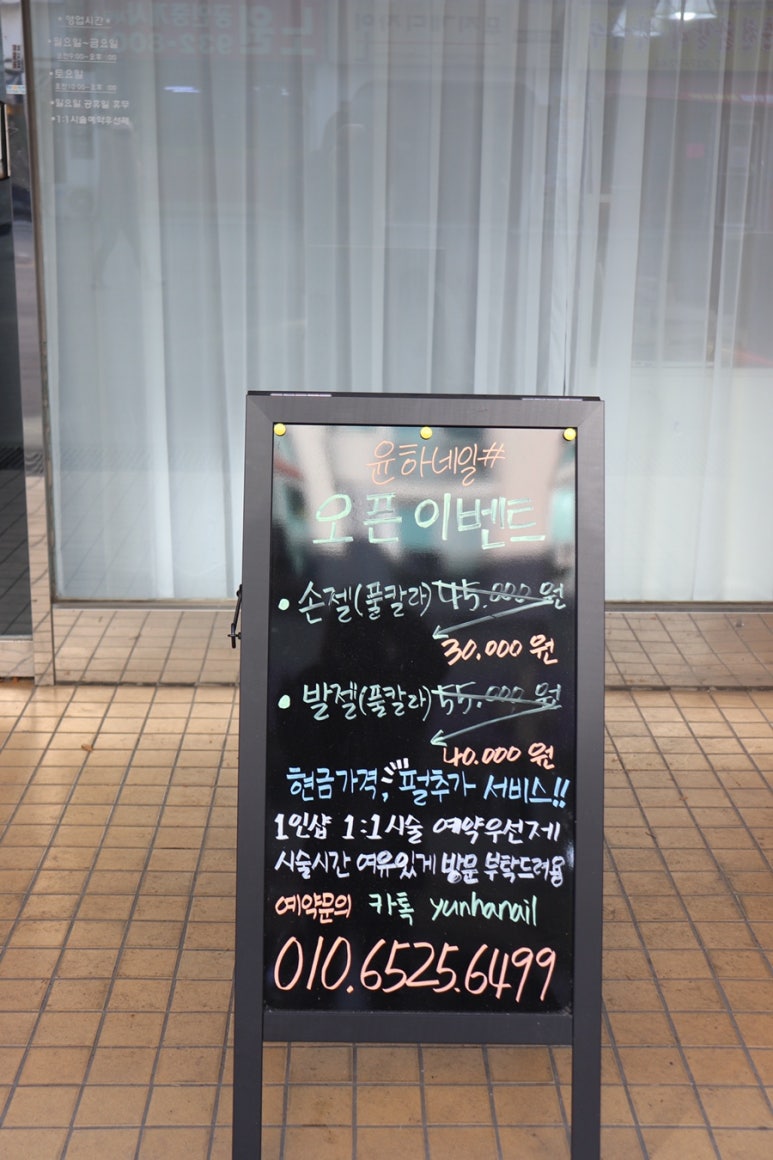 영업시간
월요일~금요일
오전9:00~오후
토요일
오전10:00~오후
일요일 공휴일 휴무
1:1시술예약우선제
윤하네일#
오픈 이벤트
• 손젤(풀칼라) 45.000 원
30.000 원
• 발젤(풀칼라) 55.000 원
40.000 원
현금가격, 펄추가 서비스!!
1인샵 1:1시술 예약우선제
시술시간 여유있게 방문 부탁드려용
예약문의 카톡 yunhanail
010.6525.6499